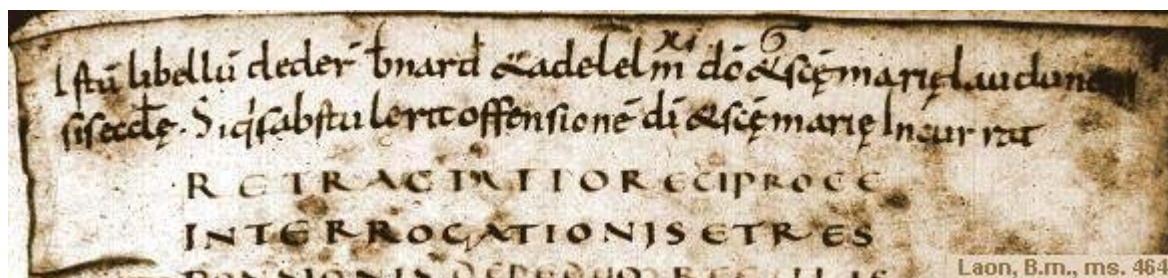 Istū libellū dederͫ bnard &adelelm dō &scę marię laudunen
sis eccłę. Siq́s abstulerit offensionē dī &scę marię Incurrat
RETRACTATIO RECIPROCE
INTERROGATIONIS ET RES
Laon, B.m., ms. 464